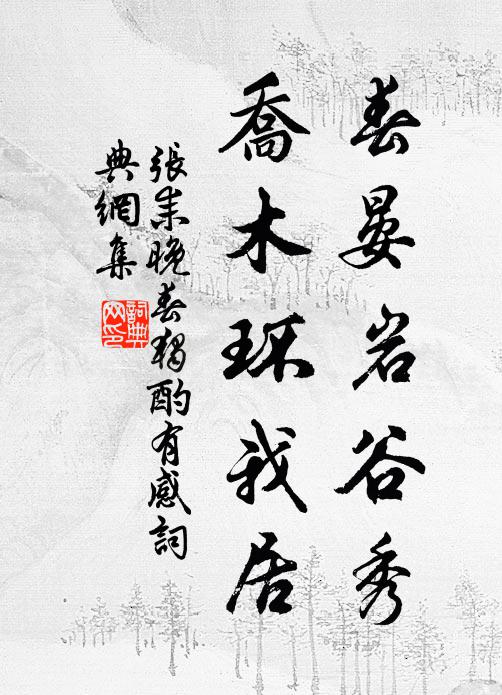 春晏岩谷秀
喬木环我居
張耒晚春獨酌有感詞
典網集
詞典
网印